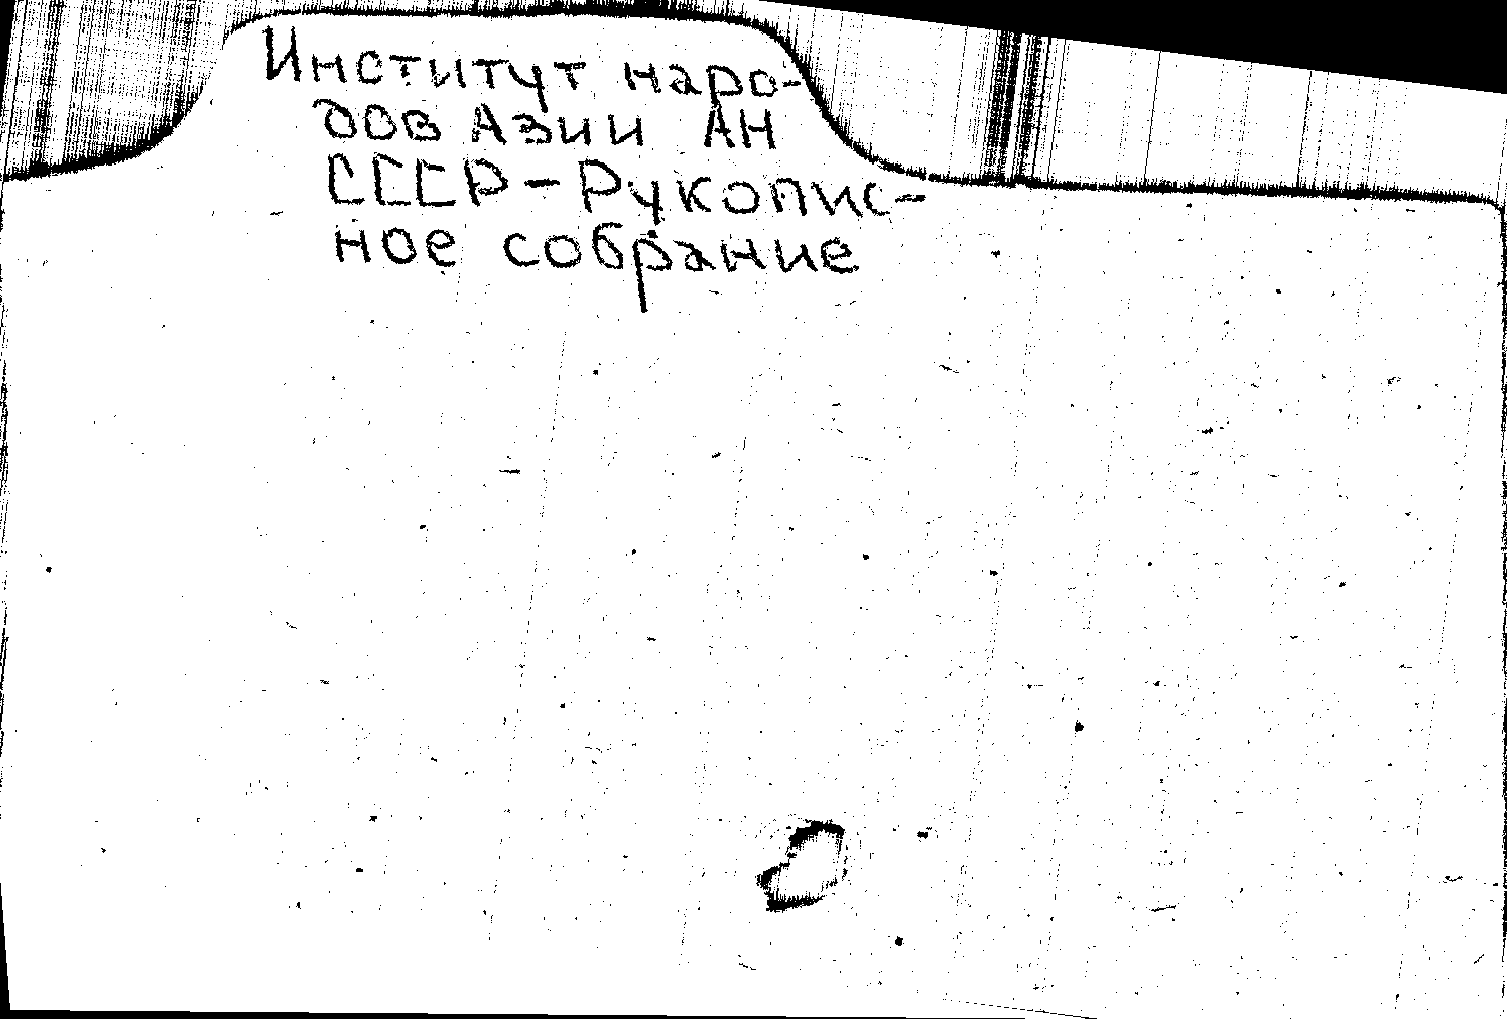 Институт наро-
дов Азии АН
СССР - Рукопис-
ное собрание